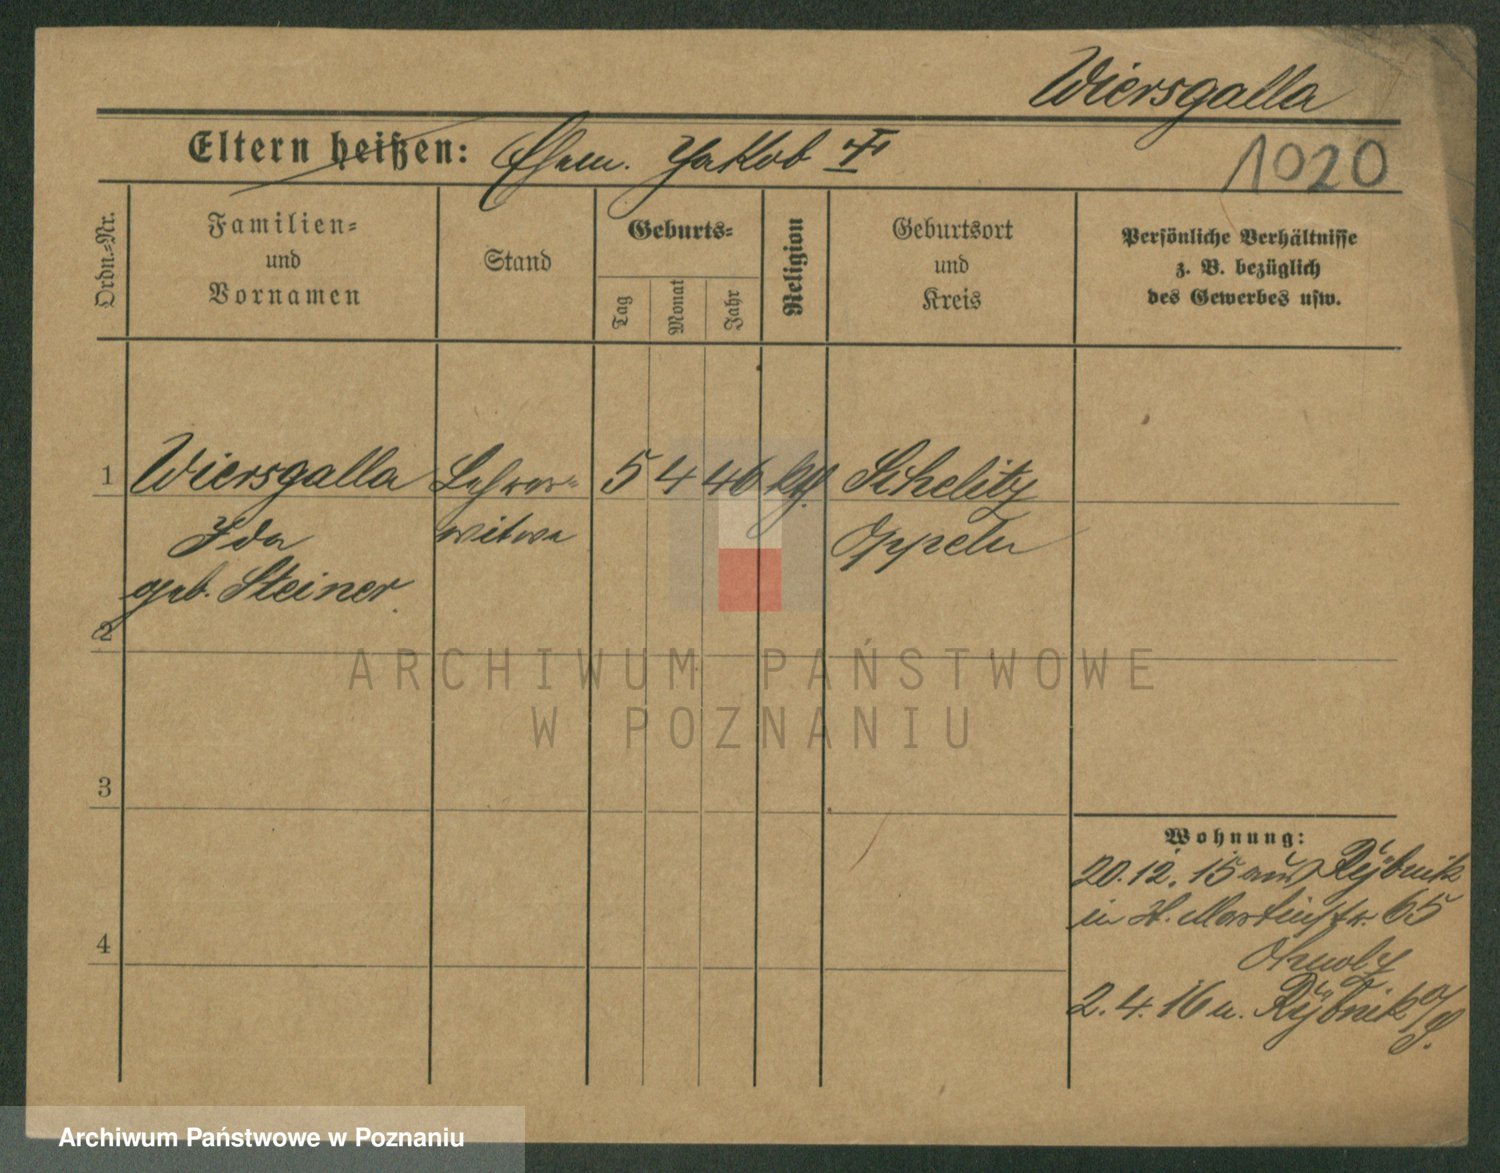 Wiersgalla
1020
Eltern heißen: Ehem. Jakob
Ordn.-Nr.
Familien-
und
Vornamen
Stand
Geburts-
Tag
Monat
Jahr
Religion
Geburtsort
und
Kreis
Persönliche Verhältnisse
z. B. bezüglich
des Gewerbes usw.
1 Wiersgalla Lehrer- 5 4 46 kth. Schelitz
Ida witwe Oppeln
geb. Steiner
2
3
4
Wohnung:
20.12.15 aus Rybnik
in St. Martinstr. 65
2.4.16 n. Rybnik
ARCHIWUM PAŃSTWOWE
W POZNANIU
Archiwum Państwowe w Poznaniu